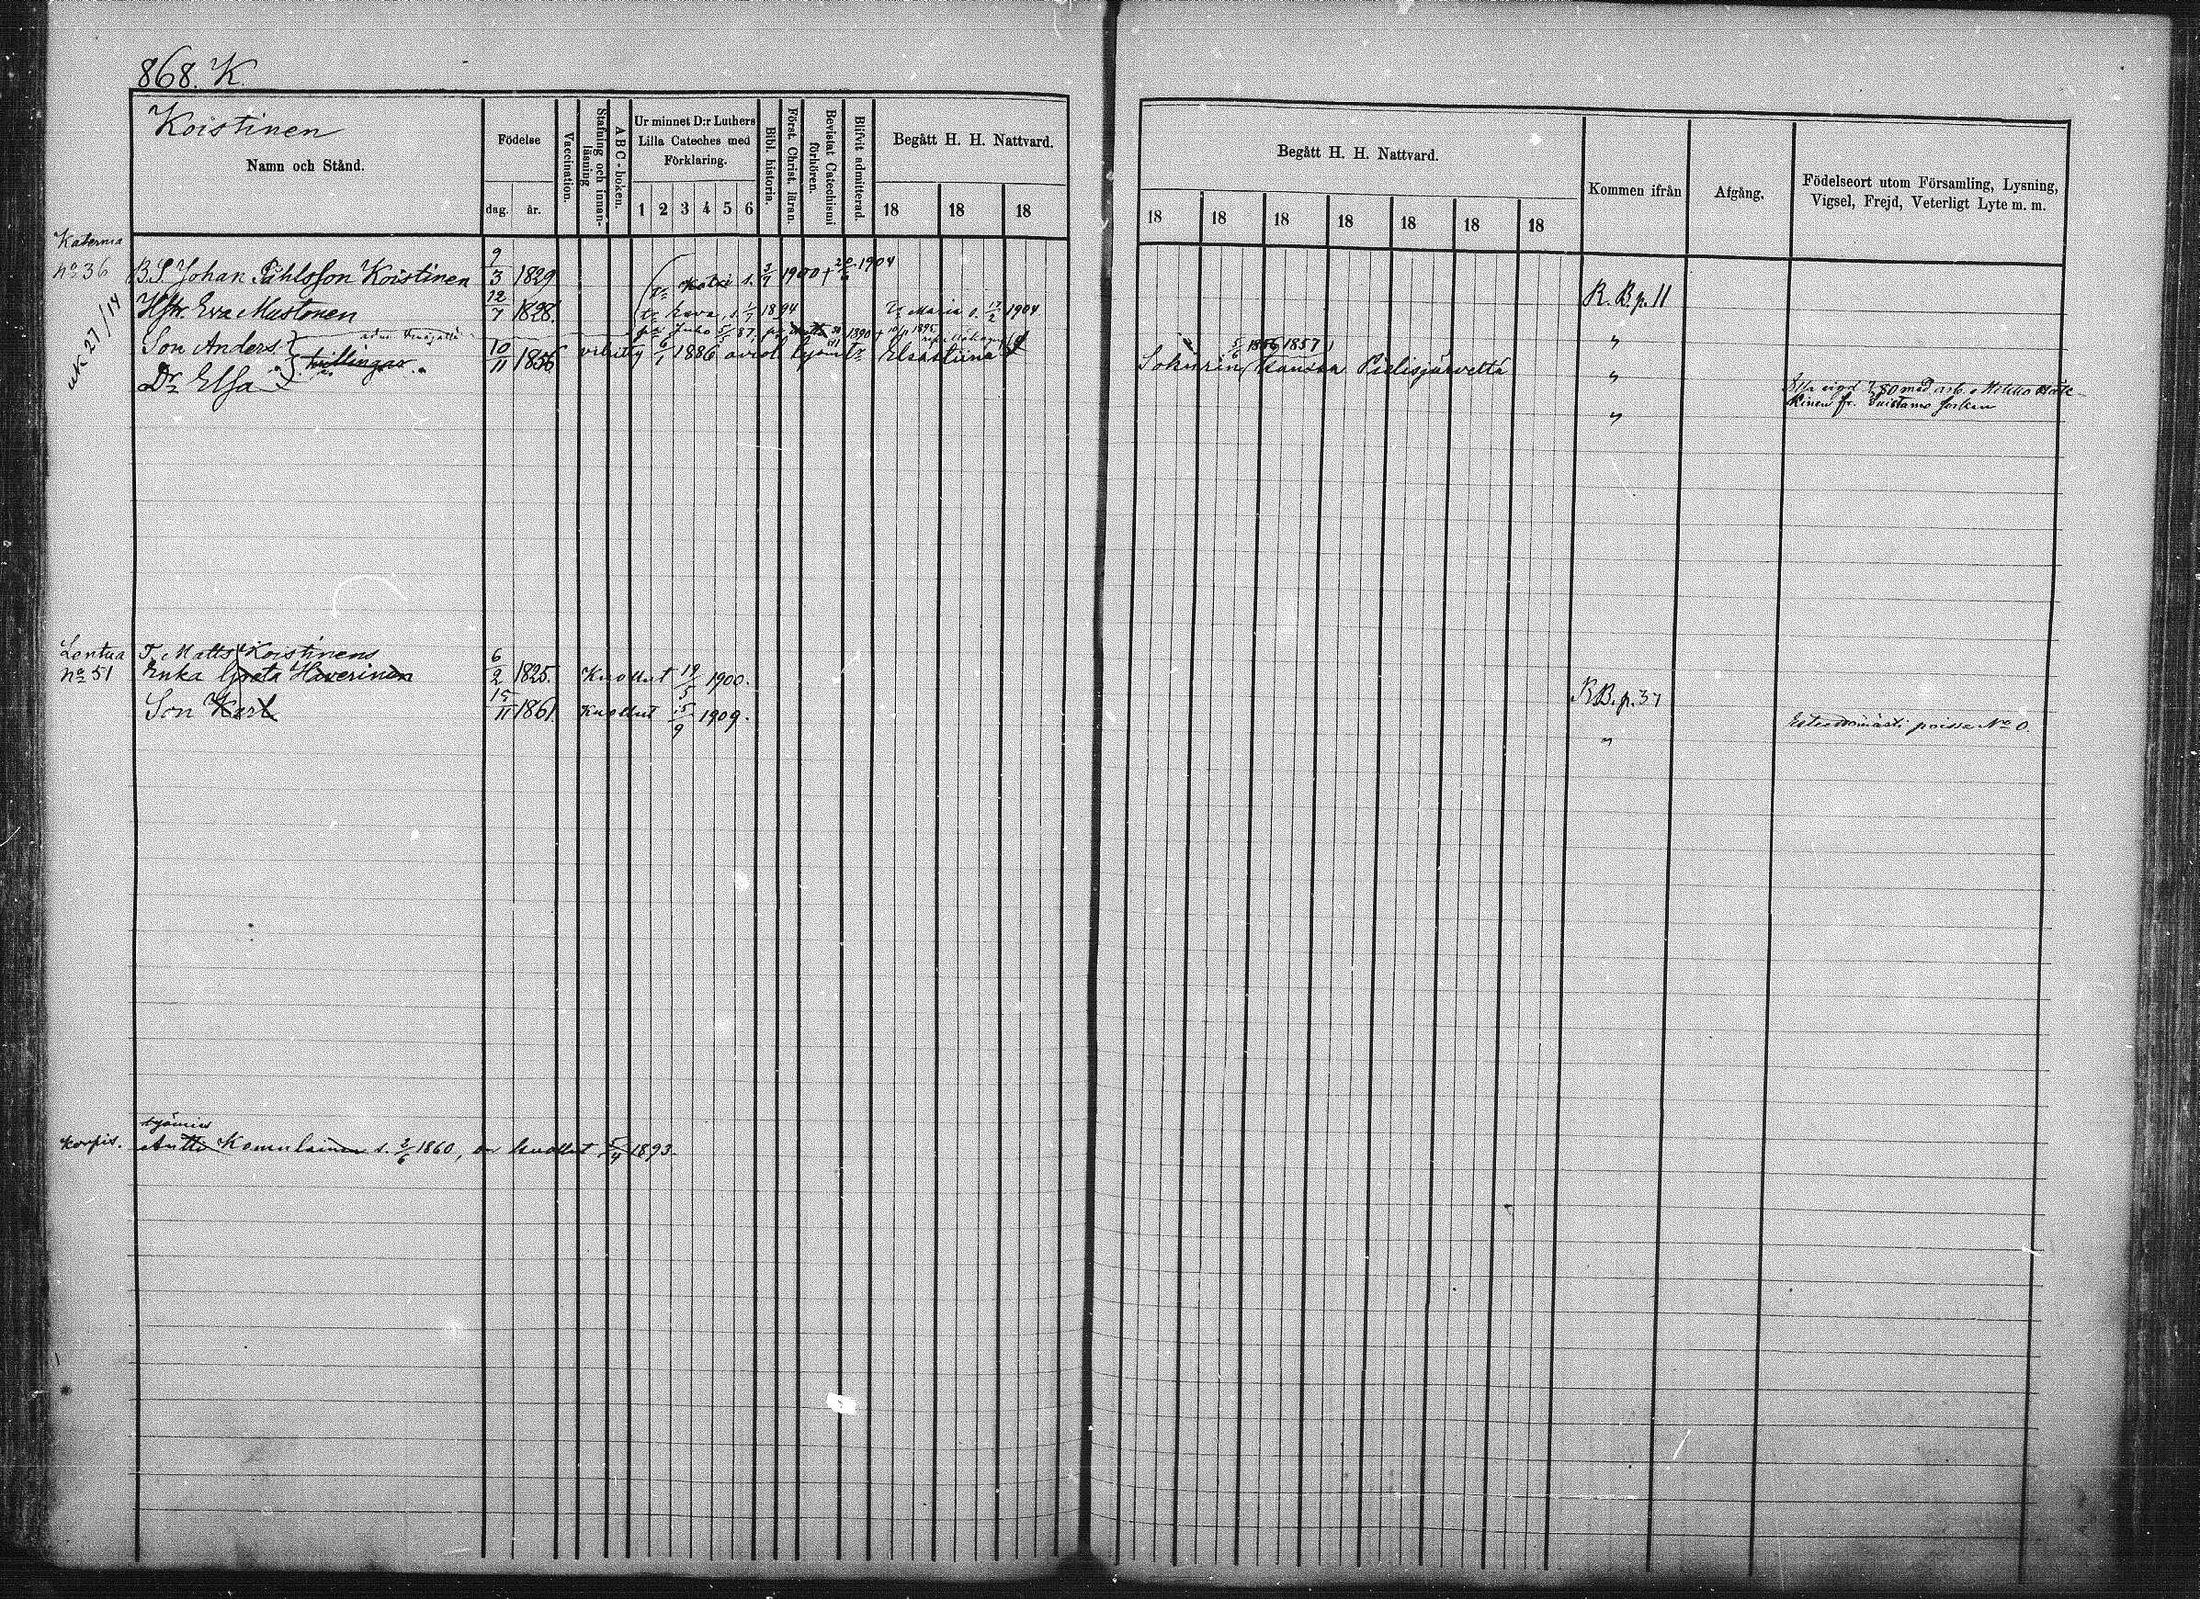 868. K.
Koistinen
Namn och Stånd.
Födelse
dag. år.
Vaccination.
Stafning och innanläsning
ABC-boken.
Ur minnet D:r Luthers Lilla Cateches med Förklaring.
1 2 3 4 5 6
Bibl. historia.
Först. Christ. läran.
Bevistat Catechismi förhören.
Blifvit admitterad.
Begått H. H. Nattvard.
18 18 18
Begått H. H. Nattvard.
18 18 18 18 18 18
Kommen ifrån
Afgång.
Födelseort utom Församling, Lysning, Vigsel, Frejd, Veterligt Lyte m. m.
Katerma
No 36 B.S. Johan Påhlsson Koistinen 9/3 1829 3/9 1900 + 1904 R. B. p. 11
uk 27/14
Hstr. Eva Mustonen 12/7 1828. 1894 Maria s. 17/2 1904 "
Son Anders tvillingar 10/11 1856 vihitty 6/1 1886 Juho 5/5 87 1890 1895 5/6 1856 1857 Pielisjärveltä "
Dr Elsa "
Lentua
No 51 T. Matts Koistinens
Enka Greta Haverinen 6/2 1825. Kuollut 19/5 1900. R.B. p. 37
Son Karl 15/11 1861 Kuollut 15/9 1909. " poissa No 0.
työmies
Korpis. Antti Komulainen s. 2/6 1860, on kuollut 5/4 1893.